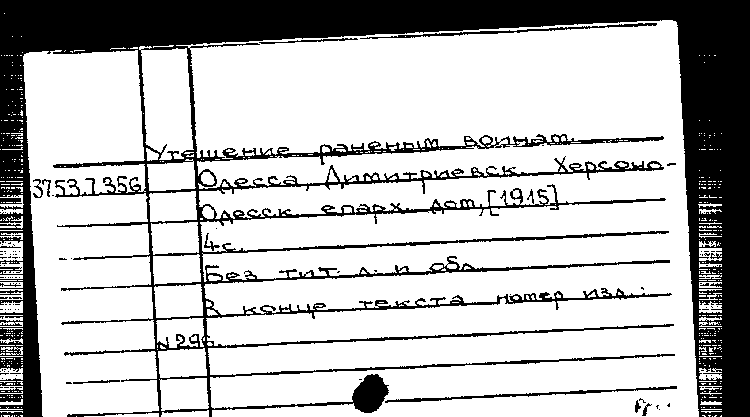 Утешение раненым воинам.
37.53.7.356. Одесса, Димитриевск. Херсоно-
Одесск. епарх. дом, [1915]
4 с.
Без тит. л. и обл.
В конце текста номер изд.:
N 296.